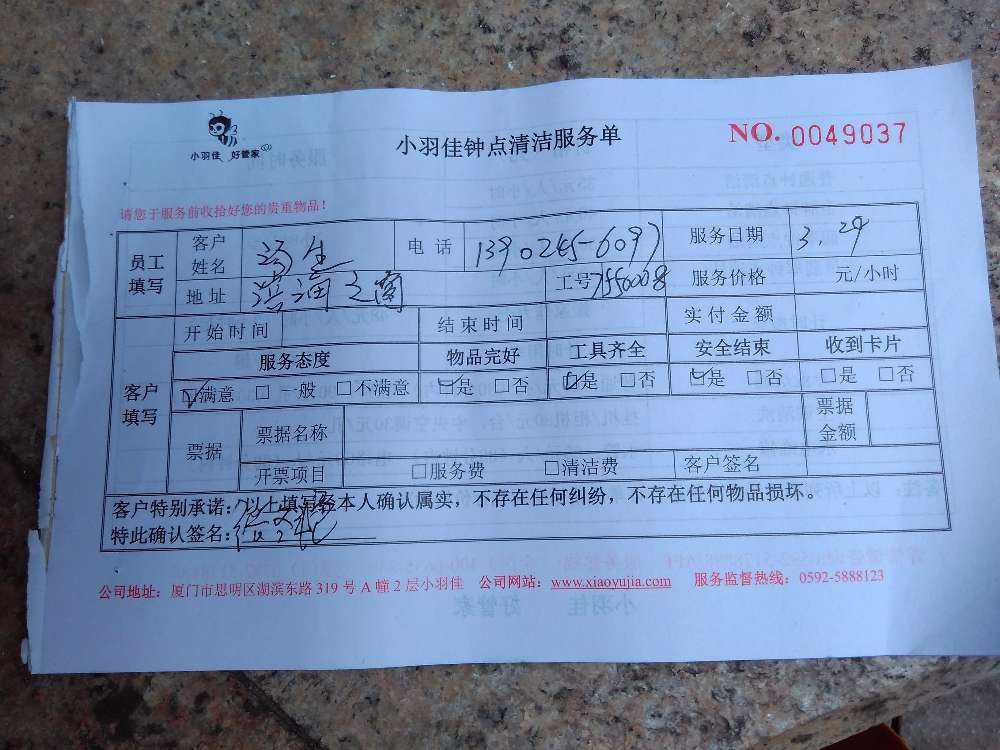 小羽佳 好管家
小羽佳钟点清洁服务单
NO. 0049037
请您于服务前收拾好您的贵重物品！
员工填写 客户姓名 冯生 电话 1390245-6097 服务日期 3.29
地址 工号 服务价格 元/小时
客户填写 开始时间 结束时间 实付金额
服务态度 物品完好 工具齐全 安全结束 收到卡片
☑满意 □一般 □不满意 ☑是 □否 ☑是 □否 ☑是 □否 □是 □否
票据 票据名称 票据金额
开票项目 □服务费 □清洁费 客户签名
客户特别承诺：以上填写经本人确认属实，不存在任何纠纷，不存在任何物品损坏。
特此确认签名：
公司地址：厦门市思明区湖滨东路 319 号 A 幢 2 层小羽佳 公司网站：www.xiaoyujia.com 服务监督热线：0592-5888123